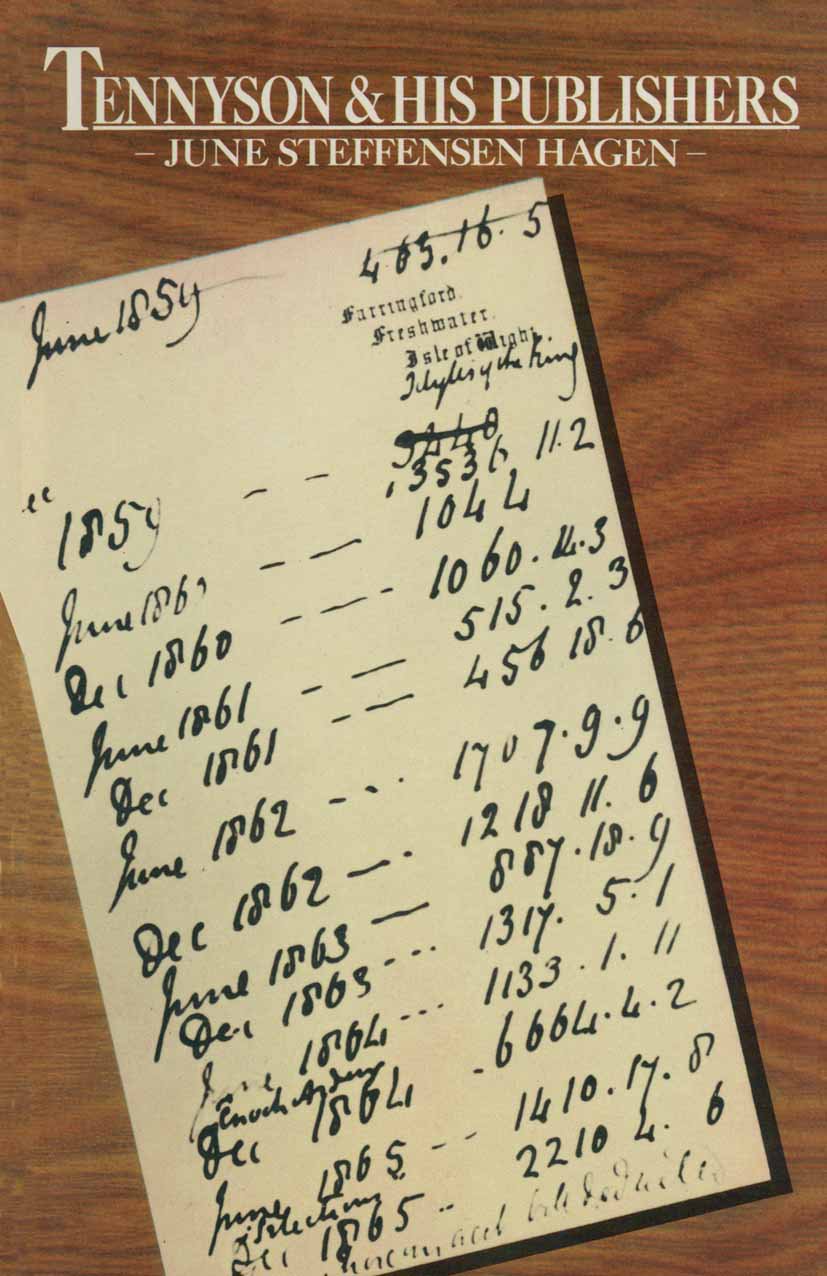 TENNYSON & HIS PUBLISHERS
– JUNE STEFFENSEN HAGEN –
June 1859 463.16.5
Farringford.
Freshwater.
Isle of Wight.
Idylls of the King
3440
" 1859 — — 3536 11.2
June 1860 — — 1044
Dec 1860 — — - 1060.14.3
June 1861 - — 515.2.3
Dec 1861 - — 456 18.6
June 1862 - - . 1707.9.9
Dec 1862 — . 1218 11.6
June 1863 — 887.18.9
Dec 1863 - - - 1317.5.1
June 1864 - - - 1133.1.11
Enoch Arden
Dec 1864 - 6664.4.2
June 1865 - - 1410.17.8
Selections
Dec 1865 - - 2210 4.6